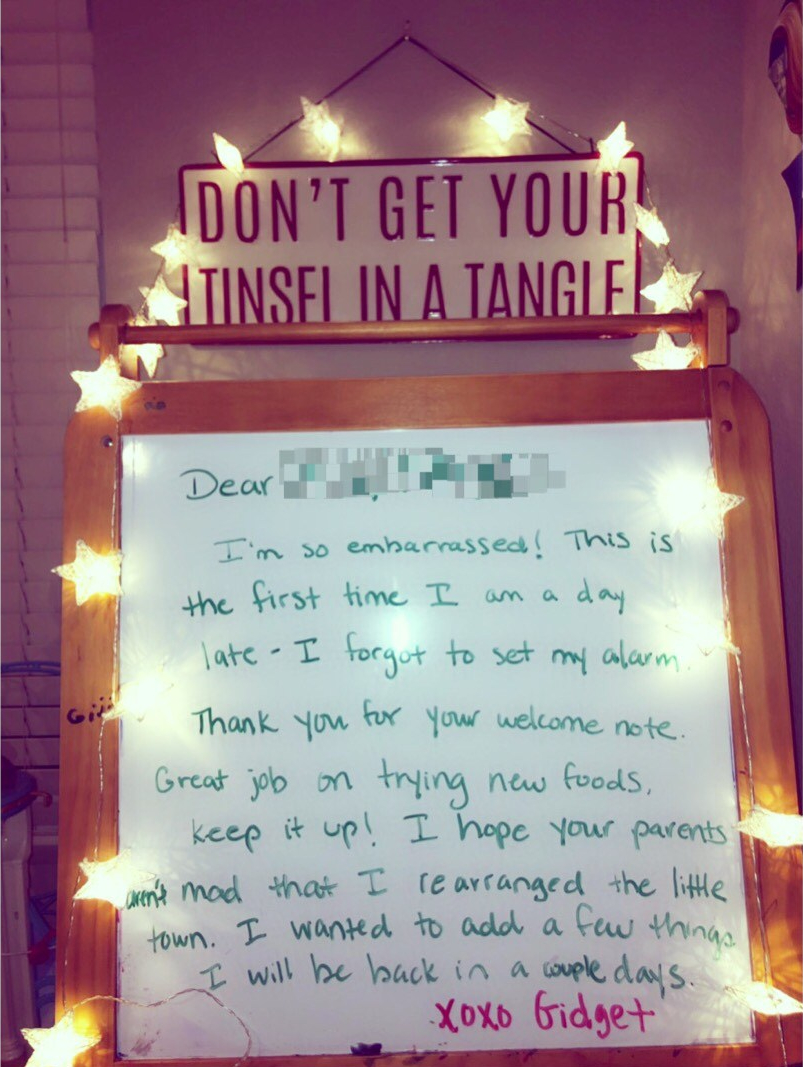 DON'T GET YOUR
TINSEL IN A TANGLE
Dear
I'm so embarrassed! This is
the first time I am a day
late - I forgot to set my alarm.
Thank you for your welcome note.
Great job on trying new foods,
keep it up! I hope your parents
aren't mad that I rearranged the little
town. I wanted to add a few things.
I will be back in a couple days.
xoxo Gidget